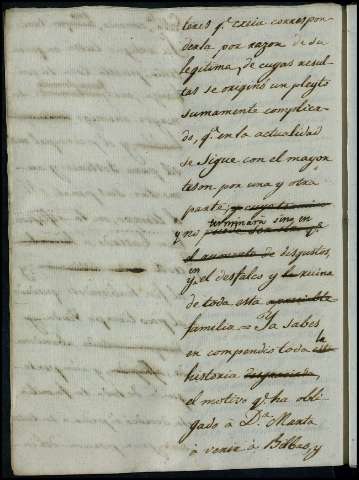 teres q.e creia correspon
derla por razon de su
legitima, de cuyas resul
tas se originó un pleyto
sumamente complica
do, q.e en la actualidad
se sigue con el mayor
teson por una y otra
parte, y cuya
terminará sino en
y no puede
el aumento de disgustos,
en
y el desfalco y la ruina
de toda esta apreciable
familia = Ya sabes
la
en compendio toda esta
historia desgraciada
el motivo q.e ha obli
gado à D.a Marta
à venir à Bilbao, y